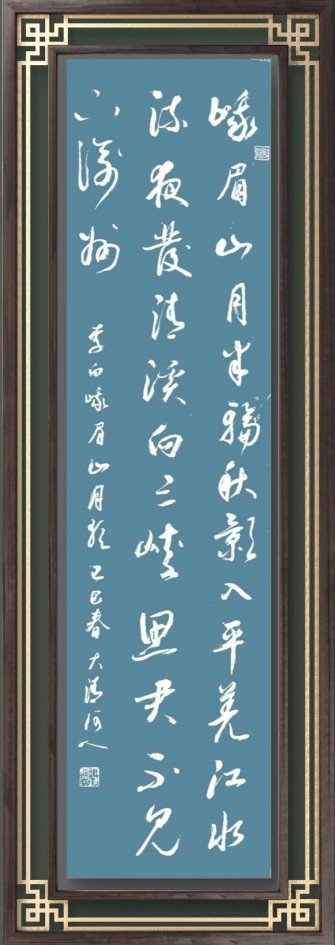 峨眉山月半輪秋影入平羌江水
流夜發清溪向三峽思君不見
下渝州
李白峨眉山月歌 乙巳春 大清河人